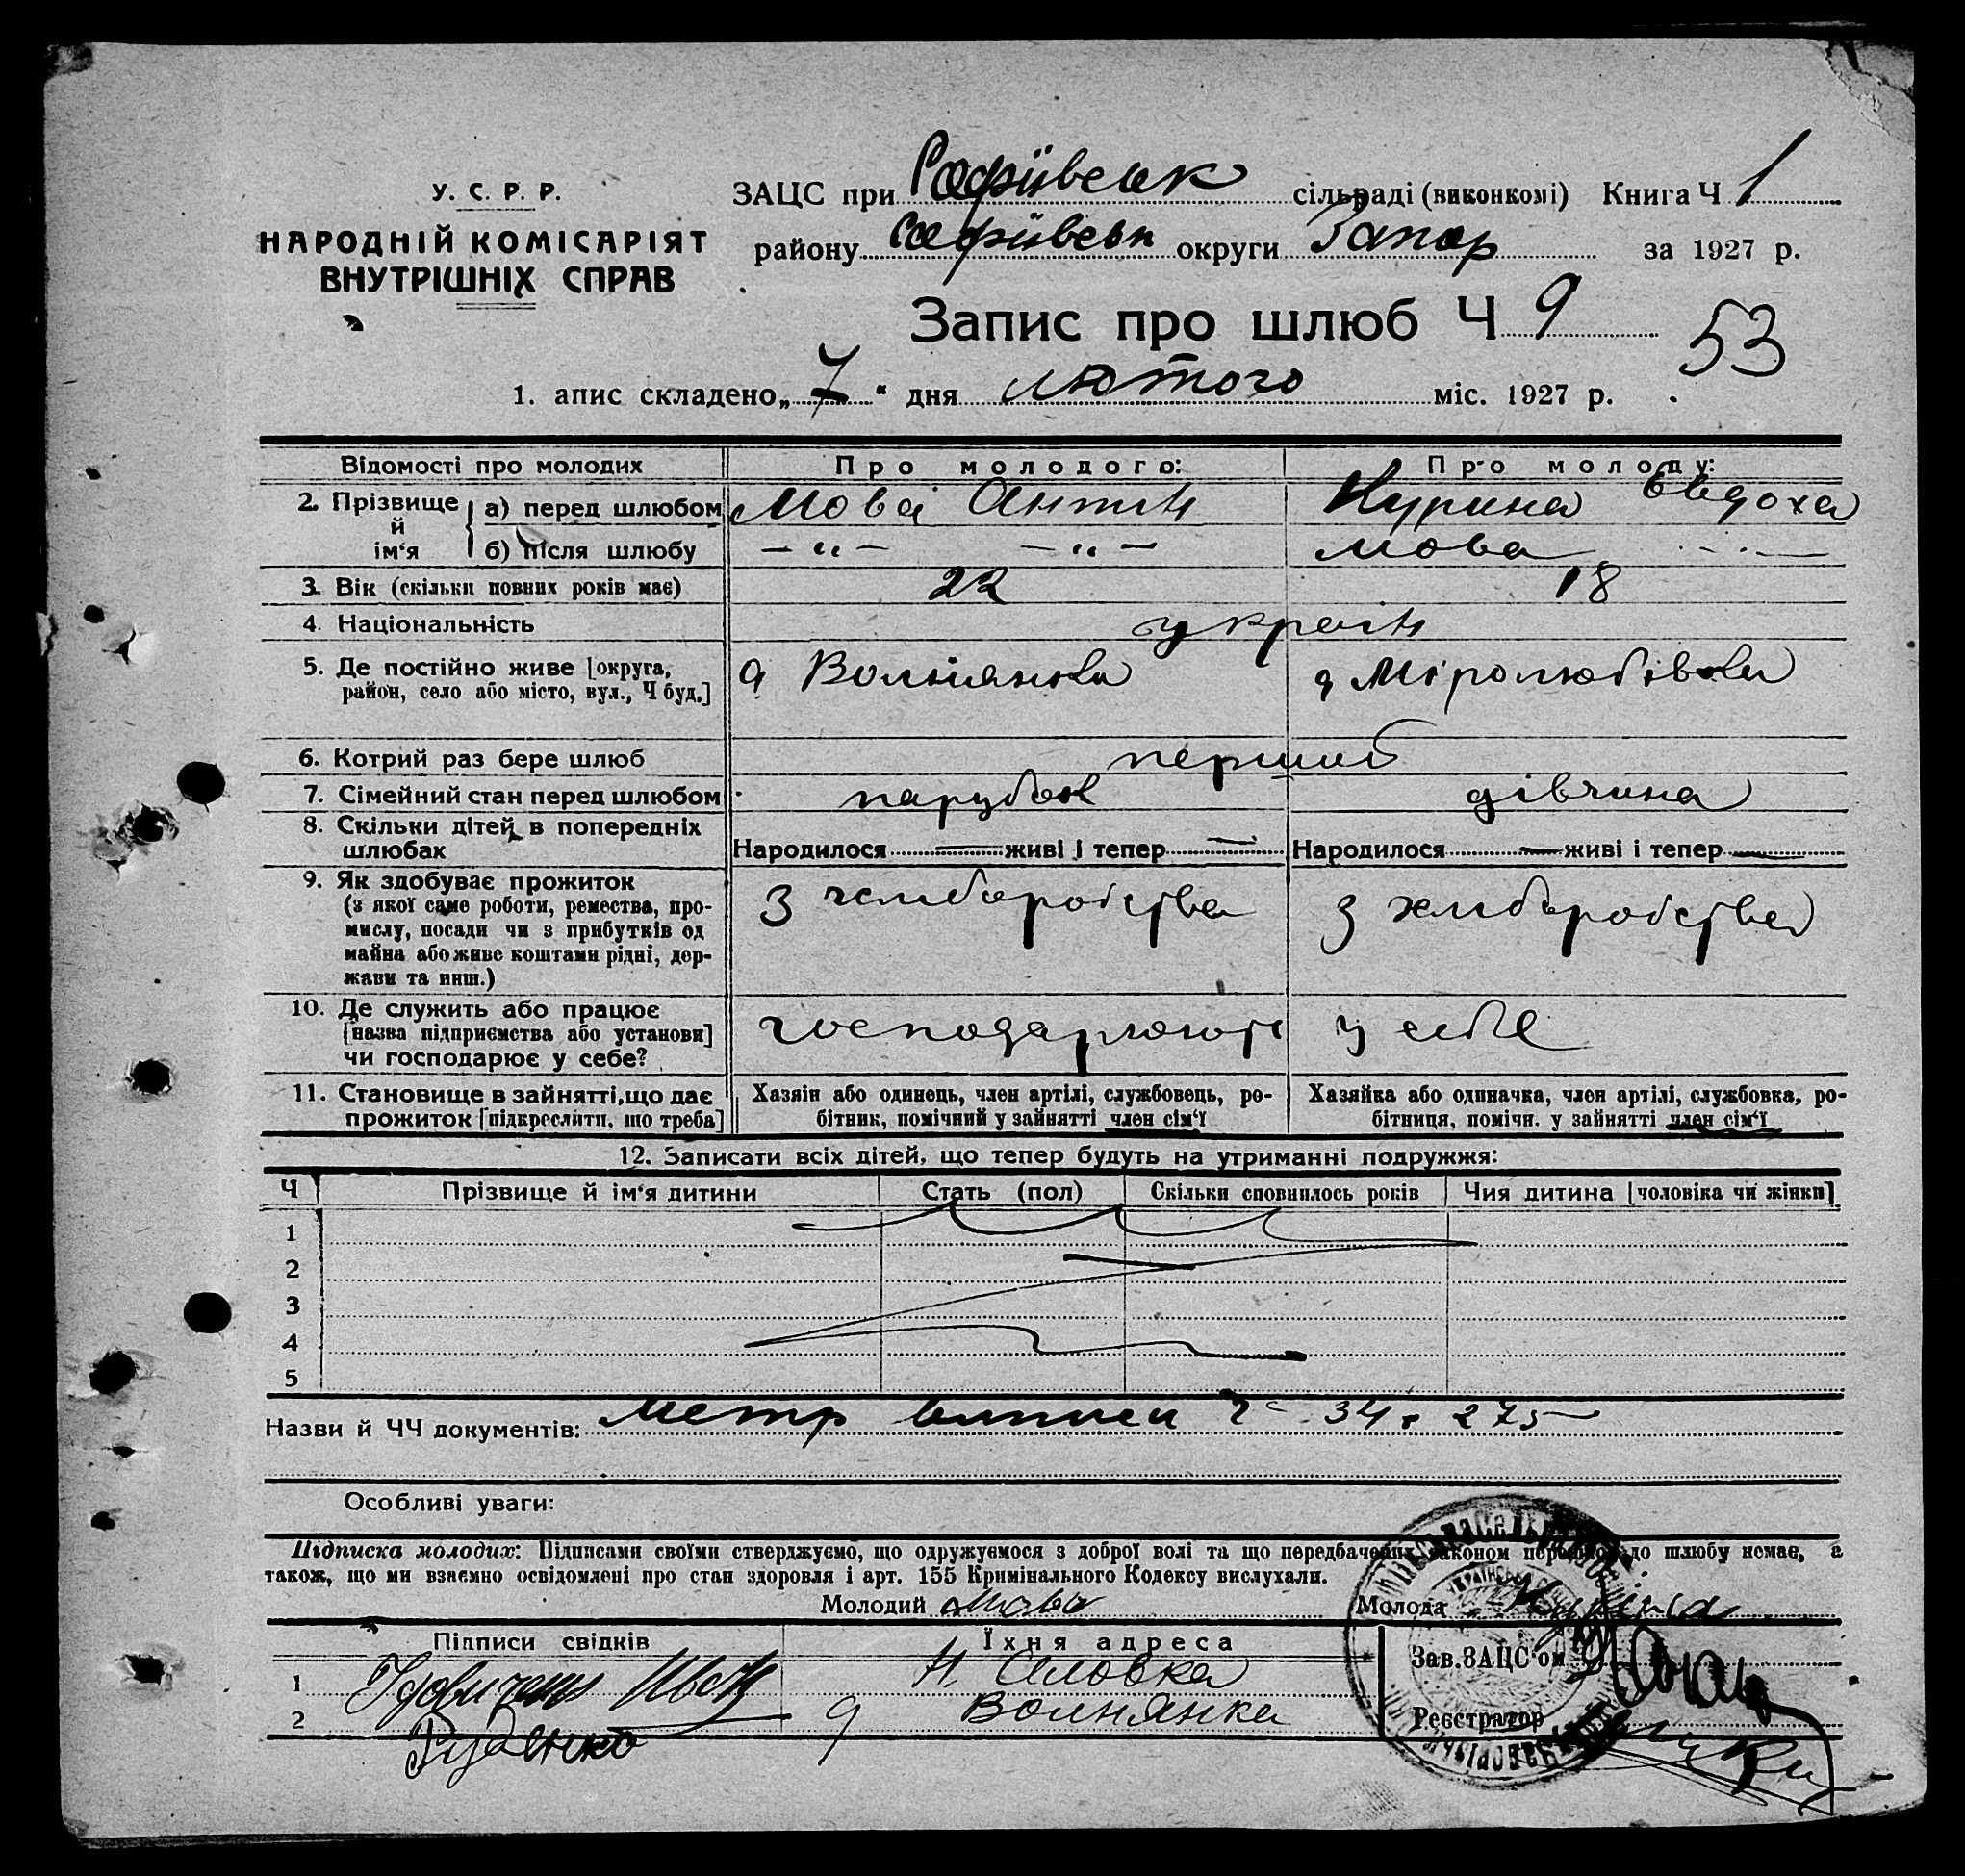 У. С. Р. Р.
НАРОДНІЙ КОМІСАРІЯТ
ВНУТРІШНІХ СПРАВ
ЗАЦС при Софіївськ сільраді (виконкомі) Книга Ч 1
району Софіївськ округи Запор за 1927 р.
Запис про шлюб Ч 9
53
1. апис складено „7“ дня лютого міс. 1927 р.
Відомості про молодих Про молодого: Про молоду:
2. Прізвище й ім‘я а) перед шлюбом Мова Антін Курина Евдоха
б) після шлюбу — “ — — “ — Мова — “ —
3. Вік (скільки повних років має) 22 18
4. Національність україн
5. Де постійно живе [округа, район, село або місто, вул., Ч буд.] с Вольнянка с Міролюбівка
6. Котрий раз бере шлюб перший
7. Сімейний стан перед шлюбом парубок дівчина
8. Скільки дітей в попередніх шлюбах Народилося — живі і тепер — Народилося — живі і тепер —
9. Як здобуває прожиток
(з якої саме роботи, ремества, про-
мислу, посади чи з прибутків од
майна або живе коштами рідні, дер-
жави та инш.)
З хліборобства З хліборобства
10. Де служить або працює
[назва підприємства або установи]
чи господарює у себе?
господарюють у себе
11. Становище в зайнятті, що дає
прожиток [підкреслити, що треба]
Хазяін або одинець, член артілі, службовець, ро-
бітник, помічний у зайнятті член сім‘ї
Хазяйка або одиначка, член артілі, службовка, ро-
бітниця, помічн. у зайнятті член сім‘ї
12. Записати всіх дітей, що тепер будуть на утриманні подружжя:
Ч Прізвище й ім‘я дитини Стать (пол) Скільки сповнилось років Чия дитина [чоловіка чи жінки]
1
2
3
4
5
Назви й ЧЧ документів: Метр виписи 34 275
Особливі уваги:
Підписка молодих: Підписами своїми стверджуємо, що одружуемося з доброї волі та що передбачених законом перешкод до шлюбу немає, а
також, що ми взаємно освідомлені про стан здоровля і арт. 155 Кримінального Кодексу вислухали.
Молодий Мова Молода Куріна
Підписи свідків Їхня адреса Зав. ЗАЦС‘ом
1
2 Руденко с Волнянка Реєстратор